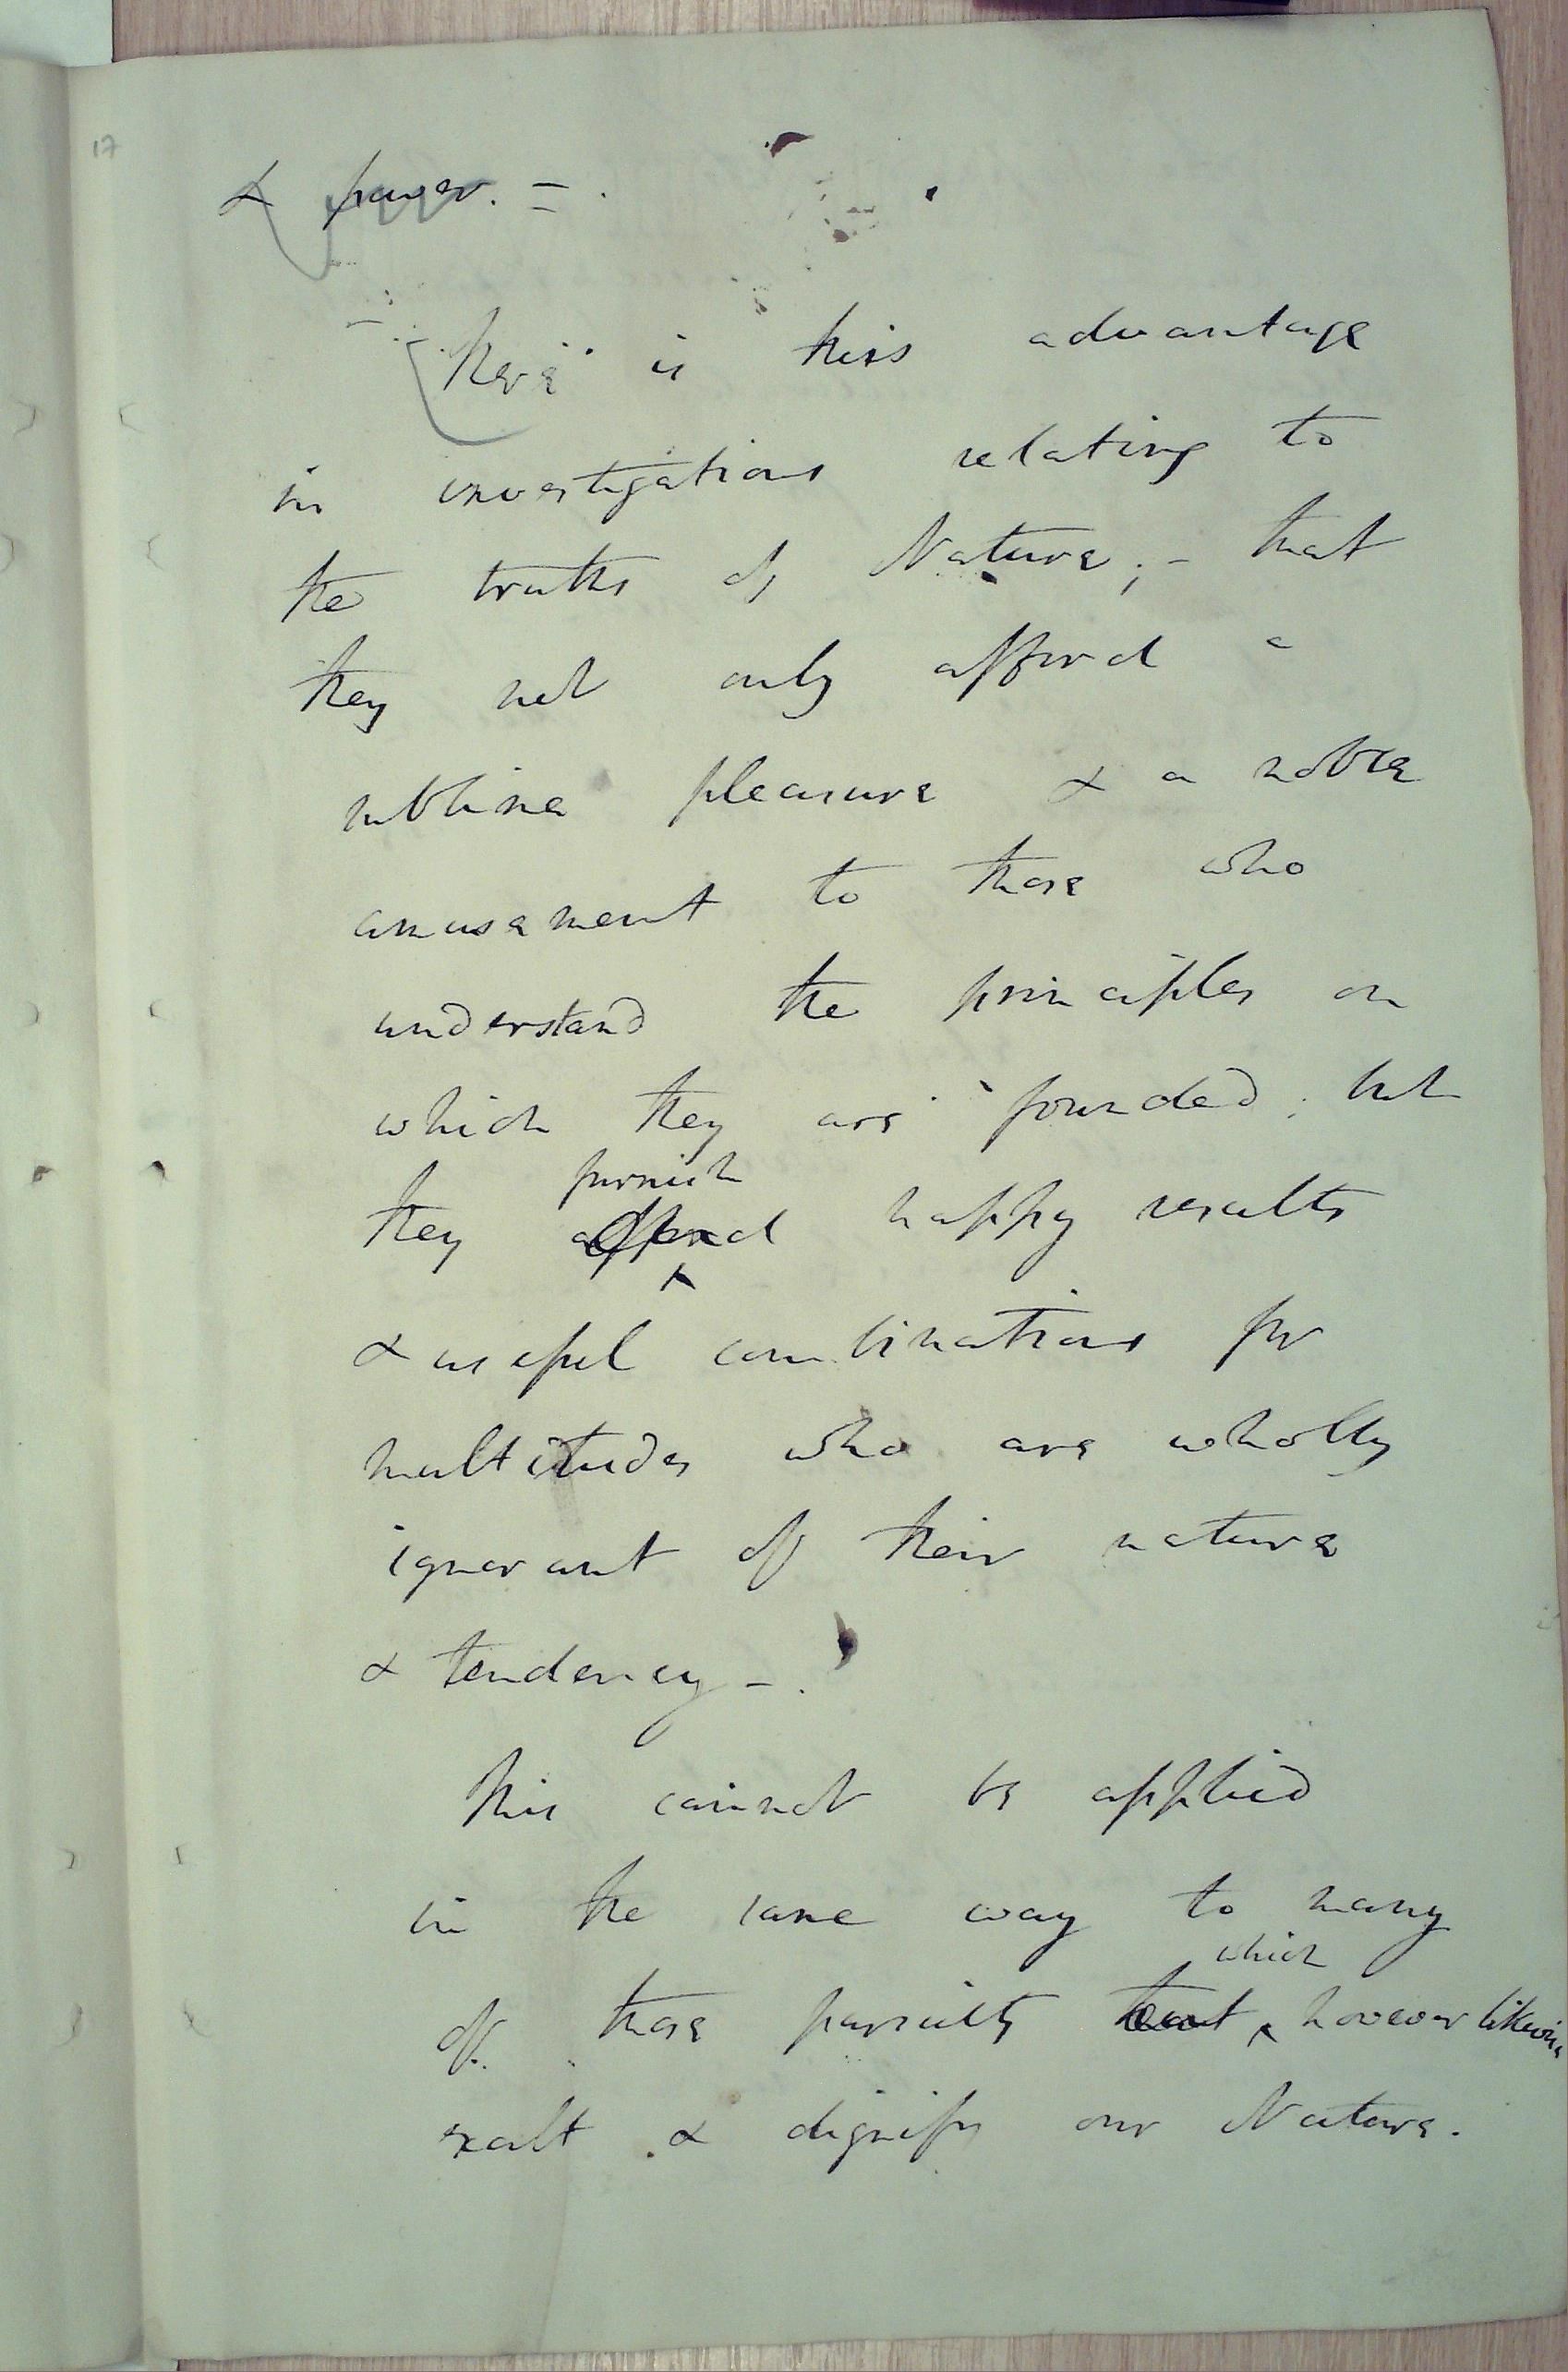 17
& power. = .
There is this advantage
in investigations relating to
the truths of Nature; - that
they not only afford a
sublime pleasure & a noble
amusement to those who
understand the principles on
which they are founded; but
furnish
they afford happy results
& useful combinations for
multitudes who are wholly
ignorant of their nature
& tendency - .
This cannot be applied
in the same way to many
which
of those pursuits that however likewise
exalt & dignify our Nature.